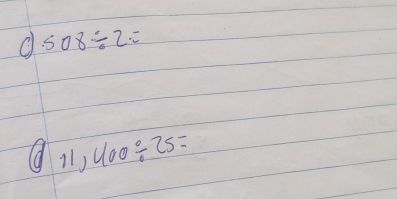 c) 508÷2=
d) 11,400÷25=